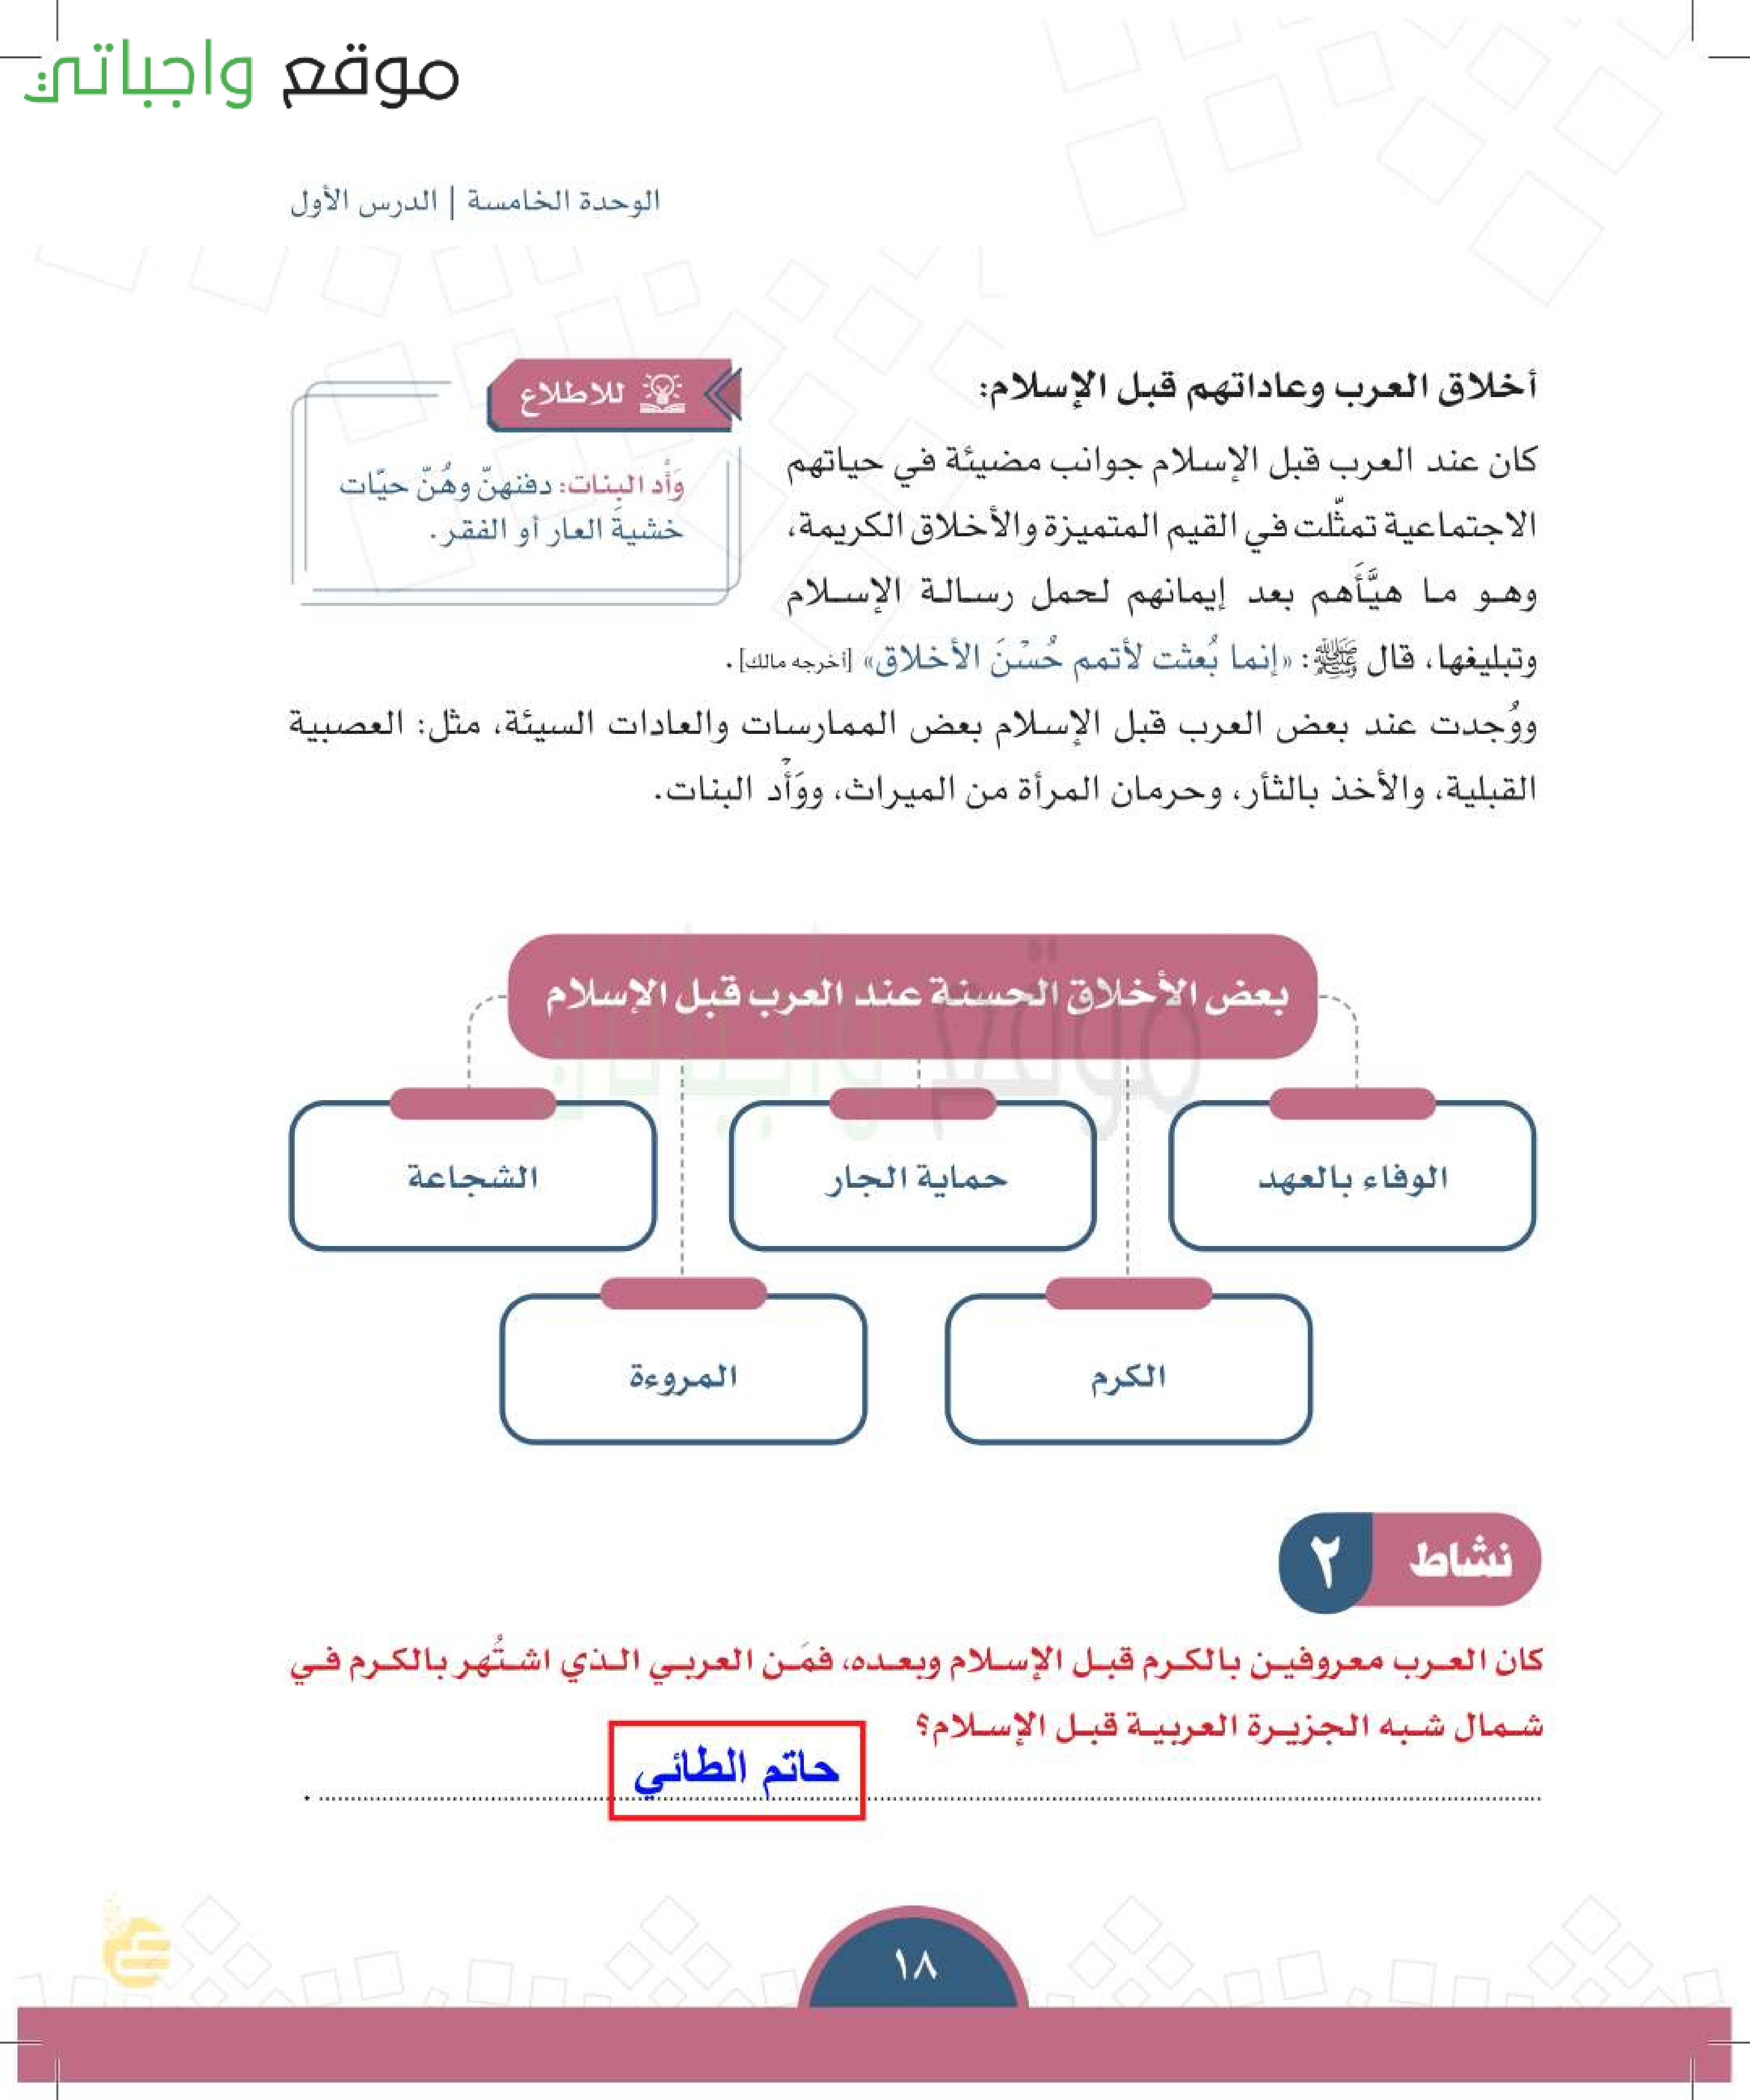 موقع واجباتي
الوحدة الخامسة | الدرس الأول
أخلاق العرب وعاداتهم قبل الإسلام:
كان عند العرب قبل الإسلام جوانب مضيئة في حياتهم
الاجتماعية تمثّلت في القيم المتميزة والأخلاق الكريمة،
وهو ما هيَّأَهم بعد إيمانهم لحمل رسالة الإسلام
وتبليغها، قال ﷺ: «إنما بُعثت لأتمم حُسْنَ الأخلاق» [أخرجه مالك].
ووُجدت عند بعض العرب قبل الإسلام بعض الممارسات والعادات السيئة، مثل: العصبية
القبلية، والأخذ بالثأر، وحرمان المرأة من الميراث، ووَأْد البنات.
للاطلاع
وَأْد البنات: دفنهنّ وهُنّ حيّات
خشيةَ العار أو الفقر.
بعض الأخلاق الحسنة عند العرب قبل الإسلام
الوفاء بالعهد
حماية الجار
الشجاعة
الكرم
المروءة
موقع واجباتي
نشاط ٢
كان العرب معروفين بالكرم قبل الإسلام وبعده، فمَن العربي الذي اشتُهر بالكرم في
شمال شبه الجزيرة العربية قبل الإسلام؟
حاتم الطائي
١٨